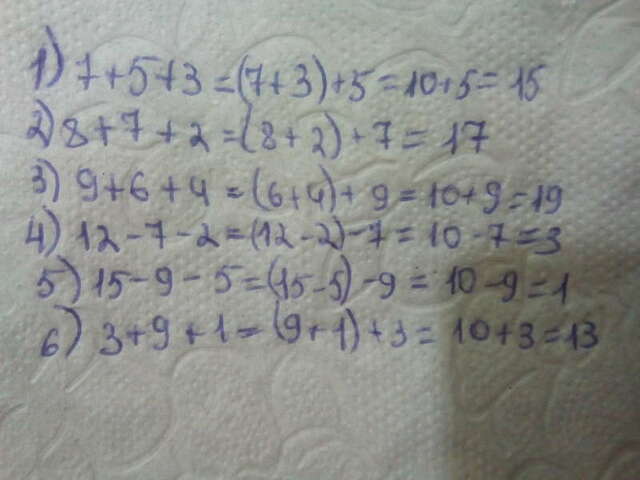 1) 7+5+3=(7+3)+5=10+5=15
2) 8+7+2=(8+2)+7=17
3) 9+6+4=(6+4)+9=10+9=19
4) 12-7-2=(12-2)-7=10-7=3
5) 15-9-5=(15-5)-9=10-9=1
6) 3+9+1=(9+1)+3=10+3=13